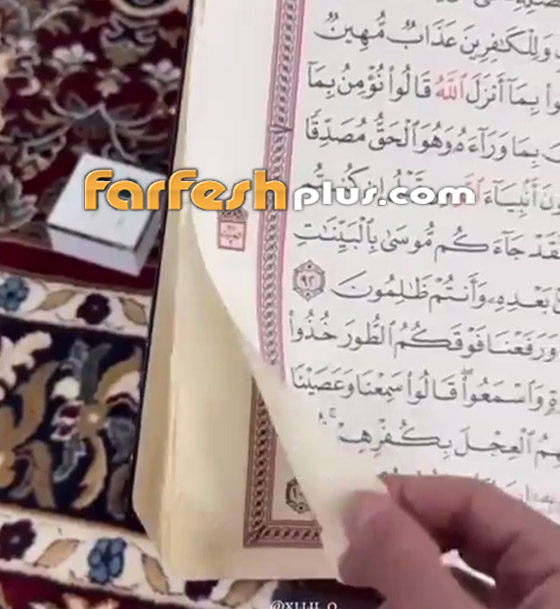 وَلِلْكَٰفِرِينَ عَذَابٌ مُّهِينٌ
بِمَآ أَنزَلَ ٱللَّهُ قَالُوا۟ نُؤْمِنُ بِمَآ
بِمَا وَرَآءَهُۥ وَهُوَ ٱلْحَقُّ مُصَدِّقًا
أَنۢبِيَآءَ
farfeshplus.com
جَآءَكُم مُّوسَىٰ بِٱلْبَيِّنَٰتِ
بَعْدِهِۦ وَأَنتُمْ ظَٰلِمُونَ ٩٢
وَرَفَعْنَا فَوْقَكُمُ ٱلطُّورَ خُذُوا۟
وَٱسْمَعُوا۟ قَالُوا۟ سَمِعْنَا وَعَصَيْنَا
ٱلْعِجْلَ بِكُفْرِهِمْ